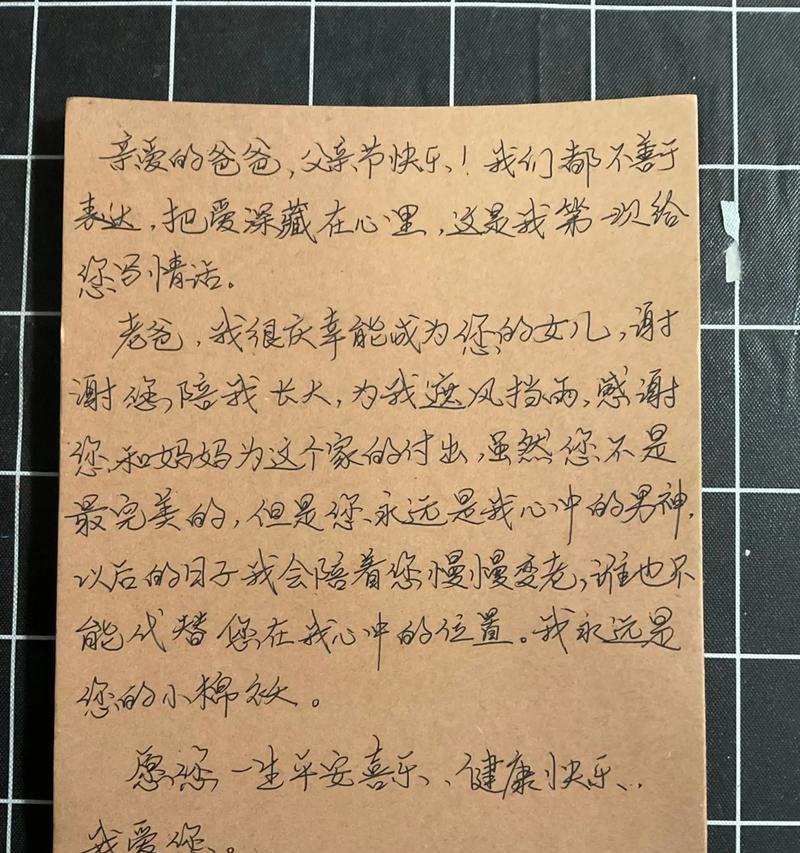 亲爱的爸爸,父亲节快乐!我们都不善于
表达,把爱深藏在心里,这是我第一次给
您写情话。
老爸,我很庆幸能成为您的女儿,谢
谢您陪我长大,为我遮风挡雨,感谢
您和妈妈为这个家的付出,虽然您不是
最完美的,但是您永远是我心中的男神,
以后的日子我会陪着您慢慢变老,谁也不
能代替您在我心中的位置。我永远是
您的小棉袄。
愿您一生平安喜乐、健康快乐、
我爱您。